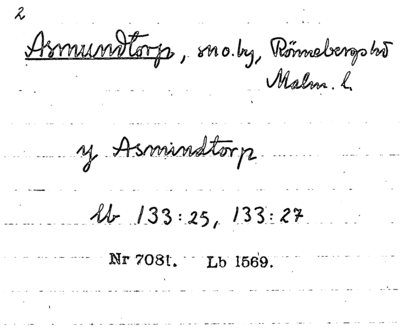 2
Asmundtorp, sn o. by, Rönnebergs hd
Malm. l.
y Asmindtorp
lb 133:25, 133:27
Nr 708t. Lb 1569.